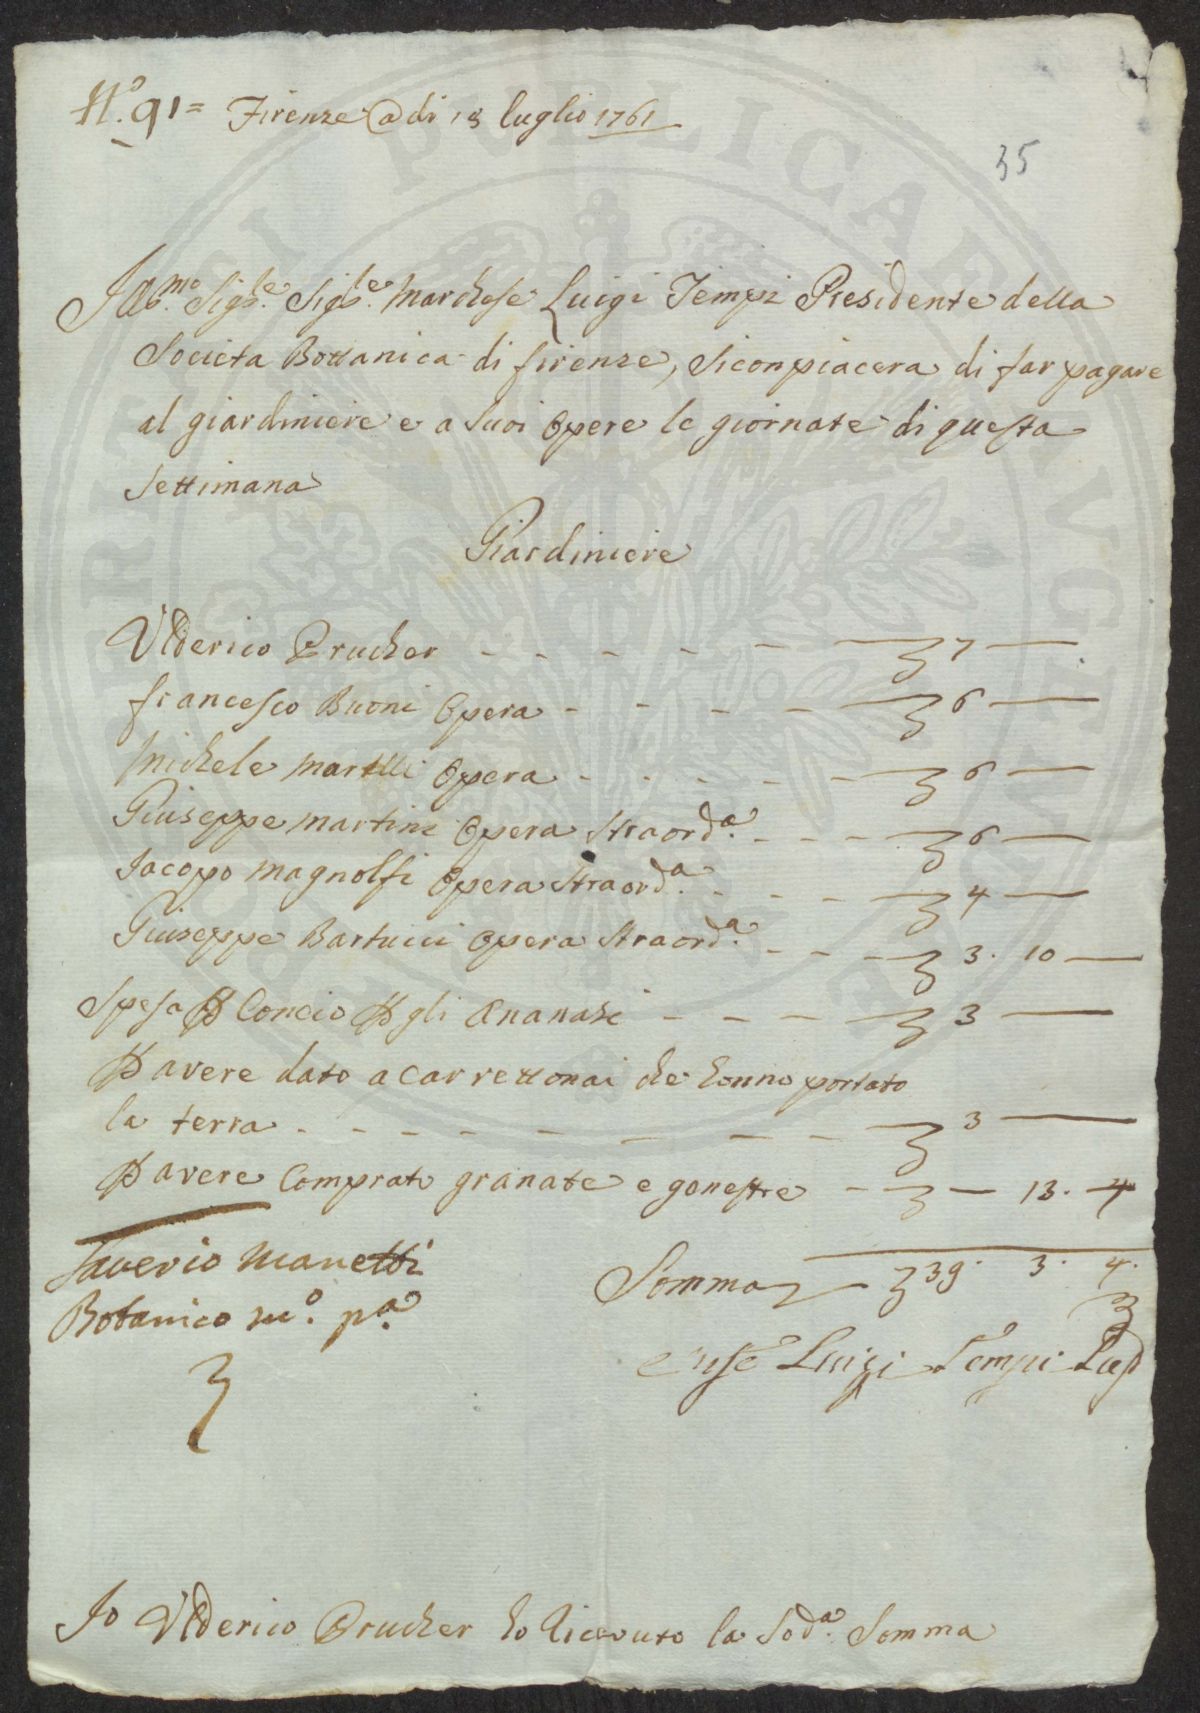 N.º 91= Firenze @ di 18 luglio 1761
35
Ill.mo Sig.re Sig.re Marchese Luigi Tempi Presidente della
Società Bottanica di firenze, Si conpiacera di far pagare
al giardiniere e a Suoi Opere le giornate di questa
Settimana
Giardiniere
Ulderico Prucher - - - - - 7 —
francesco Buoni Opera - - - - 6 —
Michele Martelli Opera - - - - - 6 —
Giuseppe Martini Opera Straord.a - - - 6 —
Jacopo Magnolfi Opera Straord.a - - - - 4 —
Giuseppe Bartucci Opera Straord.a - - - 3. 10 —
Spesa P Concio P gli Ananasi - - - 3 —
P avere dato a Carrettonai che hanno portato
la terra - - - - - - - - 3 —
P avere Comprato granate e gonestre - — 13. 4
Somma 39. 3. 4.
Saverio Manetti
Botanico m.o p.a
Luigi Tempi Pres
Io Ulderico Prucher ho Riceuuto la Sod.a Somma
PUBLICAE